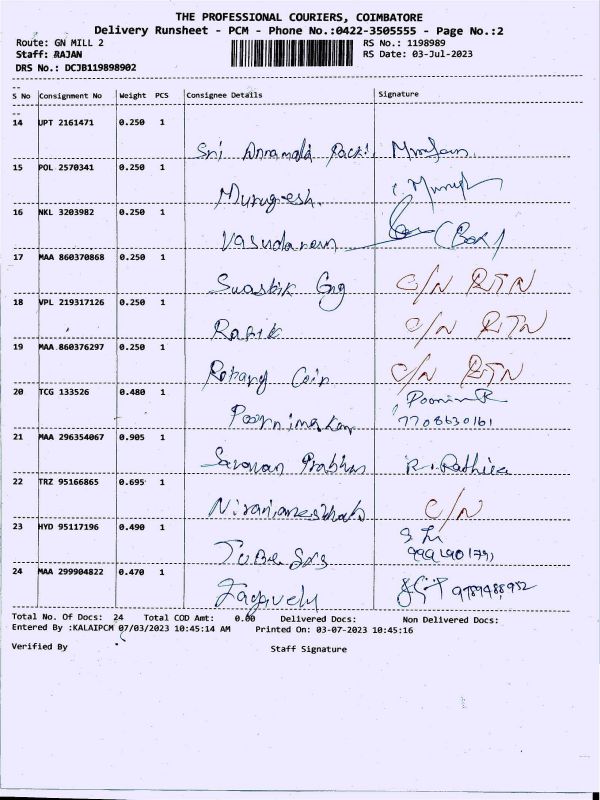 THE PROFESSIONAL COURIERS, COIMBATORE
Delivery Runsheet - PCM - Phone No.:0422-3505555 - Page No.:2
Route: GN MILL 2 RS No.: 1198989
Staff: RAJAN RS Date: 03-Jul-2023
DRS No.: DCJB119898902
S No Consignment No Weight PCS Consignee Details Signature
14 UPT 2161471 0.250 1
Sri Annamalai
15 POL 2570341 0.250 1
Murugesh.
16 NKL 3203982 0.250 1
(Box)
17 MAA 860370868 0.250 1
Swastik Eng C/N RTN
18 VPL 219317126 0.250 1
Rafik C/N RTN
19 MAA 860376297 0.250 1
Coir C/N RTN
20 TCG 133526 0.480 1
7708630161
21 MAA 296354067 0.905 1
Saravan Prabhu R. Rathika
22 TRZ 95166865 0.695 1
C/N
23 HYD 95117196 0.490 1
24 MAA 299904822 0.470 1
Total No. Of Docs: 24 Total COD Amt: 0.00 Delivered Docs: Non Delivered Docs:
Entered By :KALAIPCM 07/03/2023 10:45:14 AM Printed On: 03-07-2023 10:45:16
Verified By Staff Signature